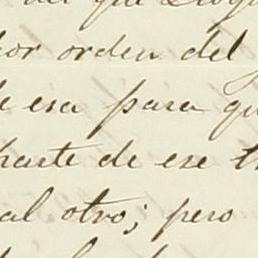 del
or orden del
de esa para qu
parte de ese t
al otro; pero